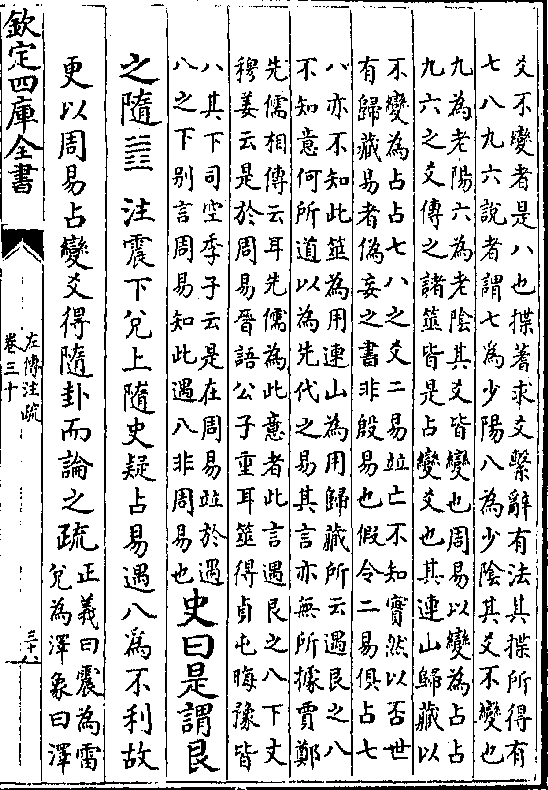 爻不變者是八也揲蓍求爻繫辭有法其揲所得有
七八九六說者謂七為少陽八為少陰其爻不變也
九為老陽六為老陰其爻皆變也周易以變為占占
九六之爻傳之諸筮皆是占變爻也其連山歸藏以
不變為占占七八之爻二易竝亡不知實然以否世
有歸藏易者偽妄之書非殷易也假令二易俱占七
八亦不知此筮為用連山為用歸藏所云遇艮之八
不知意何所道以為先代之易其言亦無所據賈鄭
先儒相傳云耳先儒為此意者此言遇艮之八下文
穆姜云是於周易晉語公子重耳筮得貞屯晦豫皆
八其下司空季子云是在周易竝於遇
八之下别言周易知此遇八非周易也
史曰是謂艮
之隨䷐ 注震下兌上隨史疑占易遇八為不利故
更以周易占變爻得隨卦而論之疏
正義曰震為雷
兌為澤象曰澤
欽定四庫全書
左傳注疏
卷三十
三十八